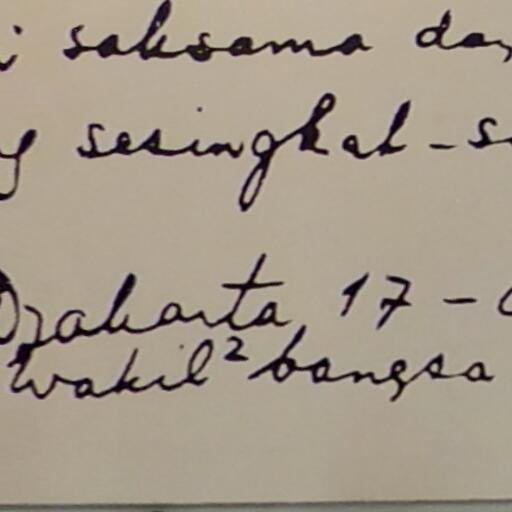 i saksama da
g sesingkat-s
Djakarta 17 -
Wakil² bangsa